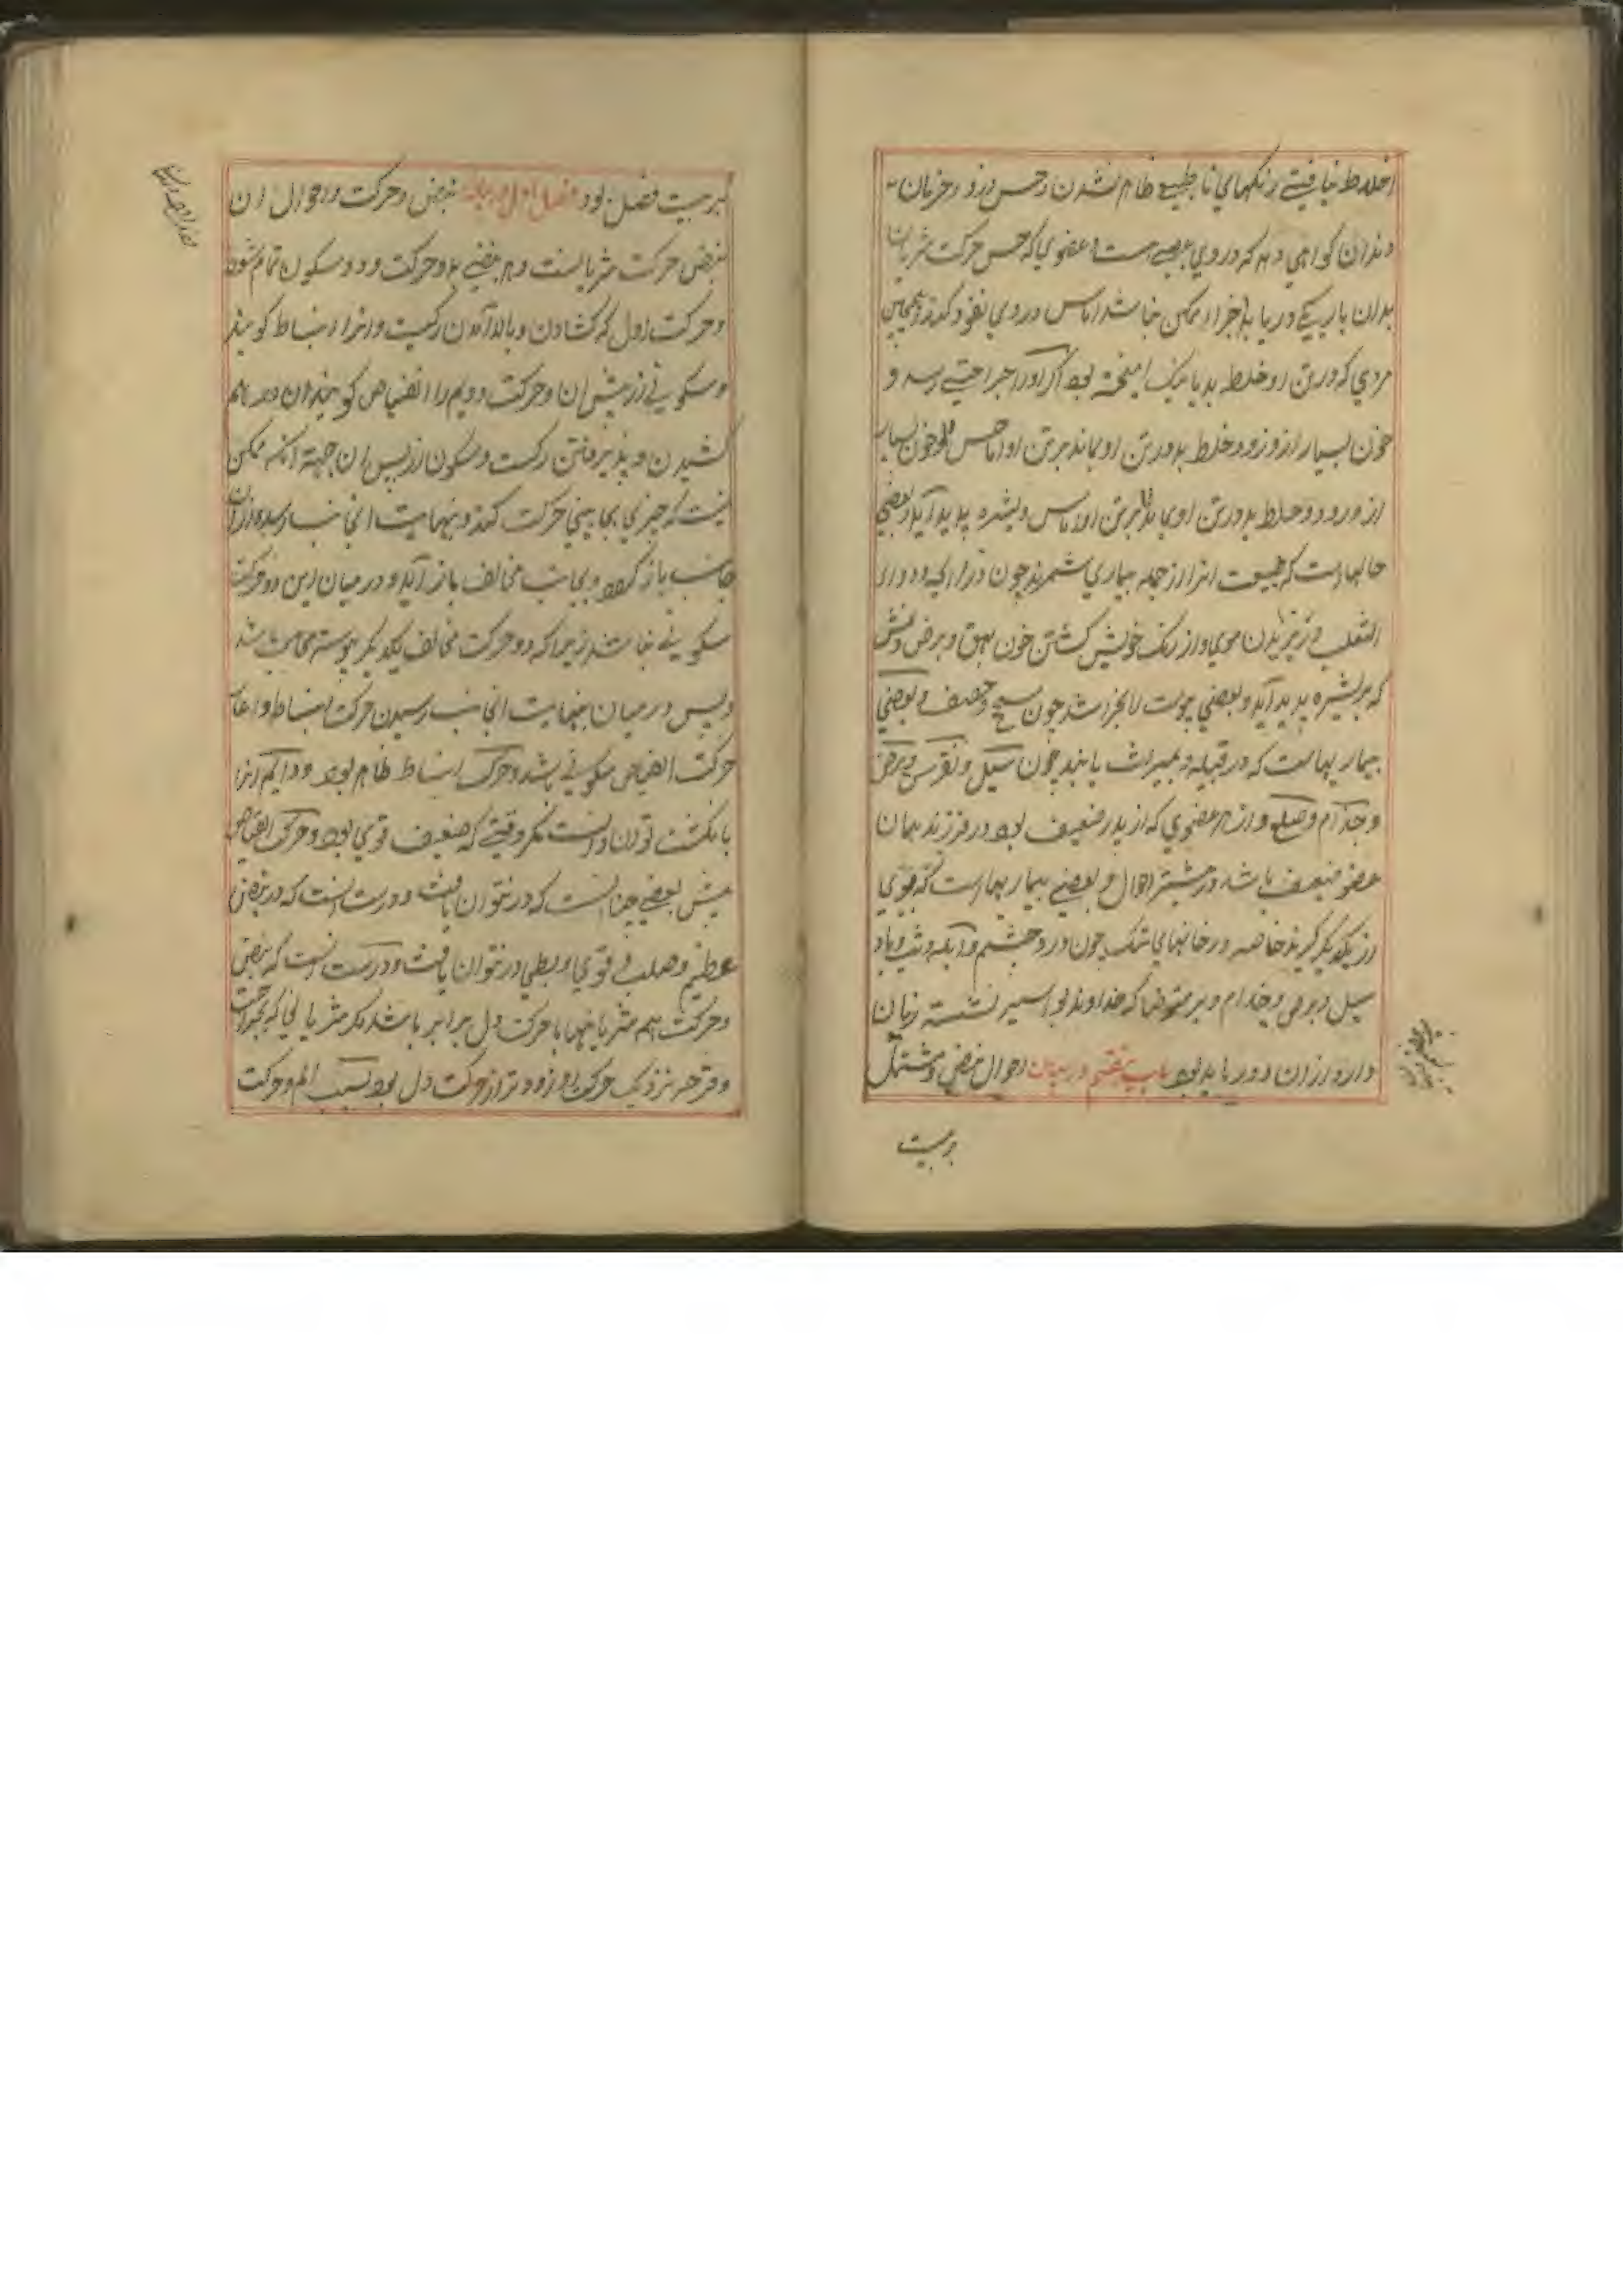 اخلاط نیافتی رنکهای نا طبیعی ظاهر شدن و حس درد و خزبان
دندان کواهی دهد که در وی عصبی هست و عضوی که حس حرکت شریان
بدان باریکی دریابد اجزا ممکن نباشد اماس در وی نفوذ کند و همچنین
مردی که در تن او خلط بد با نیک امیخته بود اکر او را جراحتی رسد و
خون بسیار از و رود و خلط بد در تن او بماند بر تن او اماس و خون بسیار
از و رود و خلط بد در تن او بماند بر تن او اماس و بشره پدید آید و بعضی
حالهاست که طبیعت انرا از جمله بیماری شمرند چون در از اکه و داء
الثعلب و ریزیدن موی و از رنک خویش کشتن خون بهق و برص و نمش
که بر بشره پدید آید و بعضی پوست را بخراشد چون سحج و حصف و بعضی
بیماریهاست که در قبیله و بمیراث یابند چون سل و نقرس و برص
و جذام و صلع و از هر عضوی که از پدر ضعیف بود در فرزند همان
عضو ضعیف باشد در بیشتر احوال و بعضی بیماریهاست که قوی
از یکدیکر کیرند خاصه در خانهای تنک چون درد چشم و آبله و تب وبا و
سل و برص و جذام و بر متوضا که خداوند بواسیر نشسته زیان
دارد از ان دور باید بود باب هفتم در بیان احوال نبض و مشتمل
بر بیست
بر بیست فصل بود فصل اول در بیان نبض و حرکت و احوال ان
نبض حرکت شریانست و هر نبضی بدو حرکت و دو سکون تمام شود
و حرکت اول که کشادن و بالا آمدن رکست و انرا انبساط کویند
و سکونی از پیش ان و حرکت دویم را انقباض کویند و ان در هم
کشیدن و پذیرفتن رکست و سکون از پس ان جهة انکه ممکن
نیست که چیزی بجانبی حرکت کند و بنهایت انجانب رسد و از ان
جانب باز کردد و بجانب مخالف باز آید و در میان این دو حرکت
سکونی نباشد زیرا که دو حرکت مخالف بیکدیکر پیوسته محال باشد
و پس در میان بنهایت انجانب رسیدن حرکت انبساط و اغاز
حرکت انقباض سکونی باشد و حرکت انبساط ظاهر بود و دایم انرا
بانکشت توان دانست مکر وقتی که ضعیف قوی بود و حرکت انقباض
پیش بعضی چنانست که در نتوان یافت و درست انست که در نبض
عظیم و صلب و قوی و بطی در نتوان یافت و درست انست که نبض
و حرکت هم شریانها با حرکت دل برابر باشد مکر شریانی که بجراحت
و قرحه نزدیک حرکت او زودتر از حرکت دل بود بسبب الم و حرکت